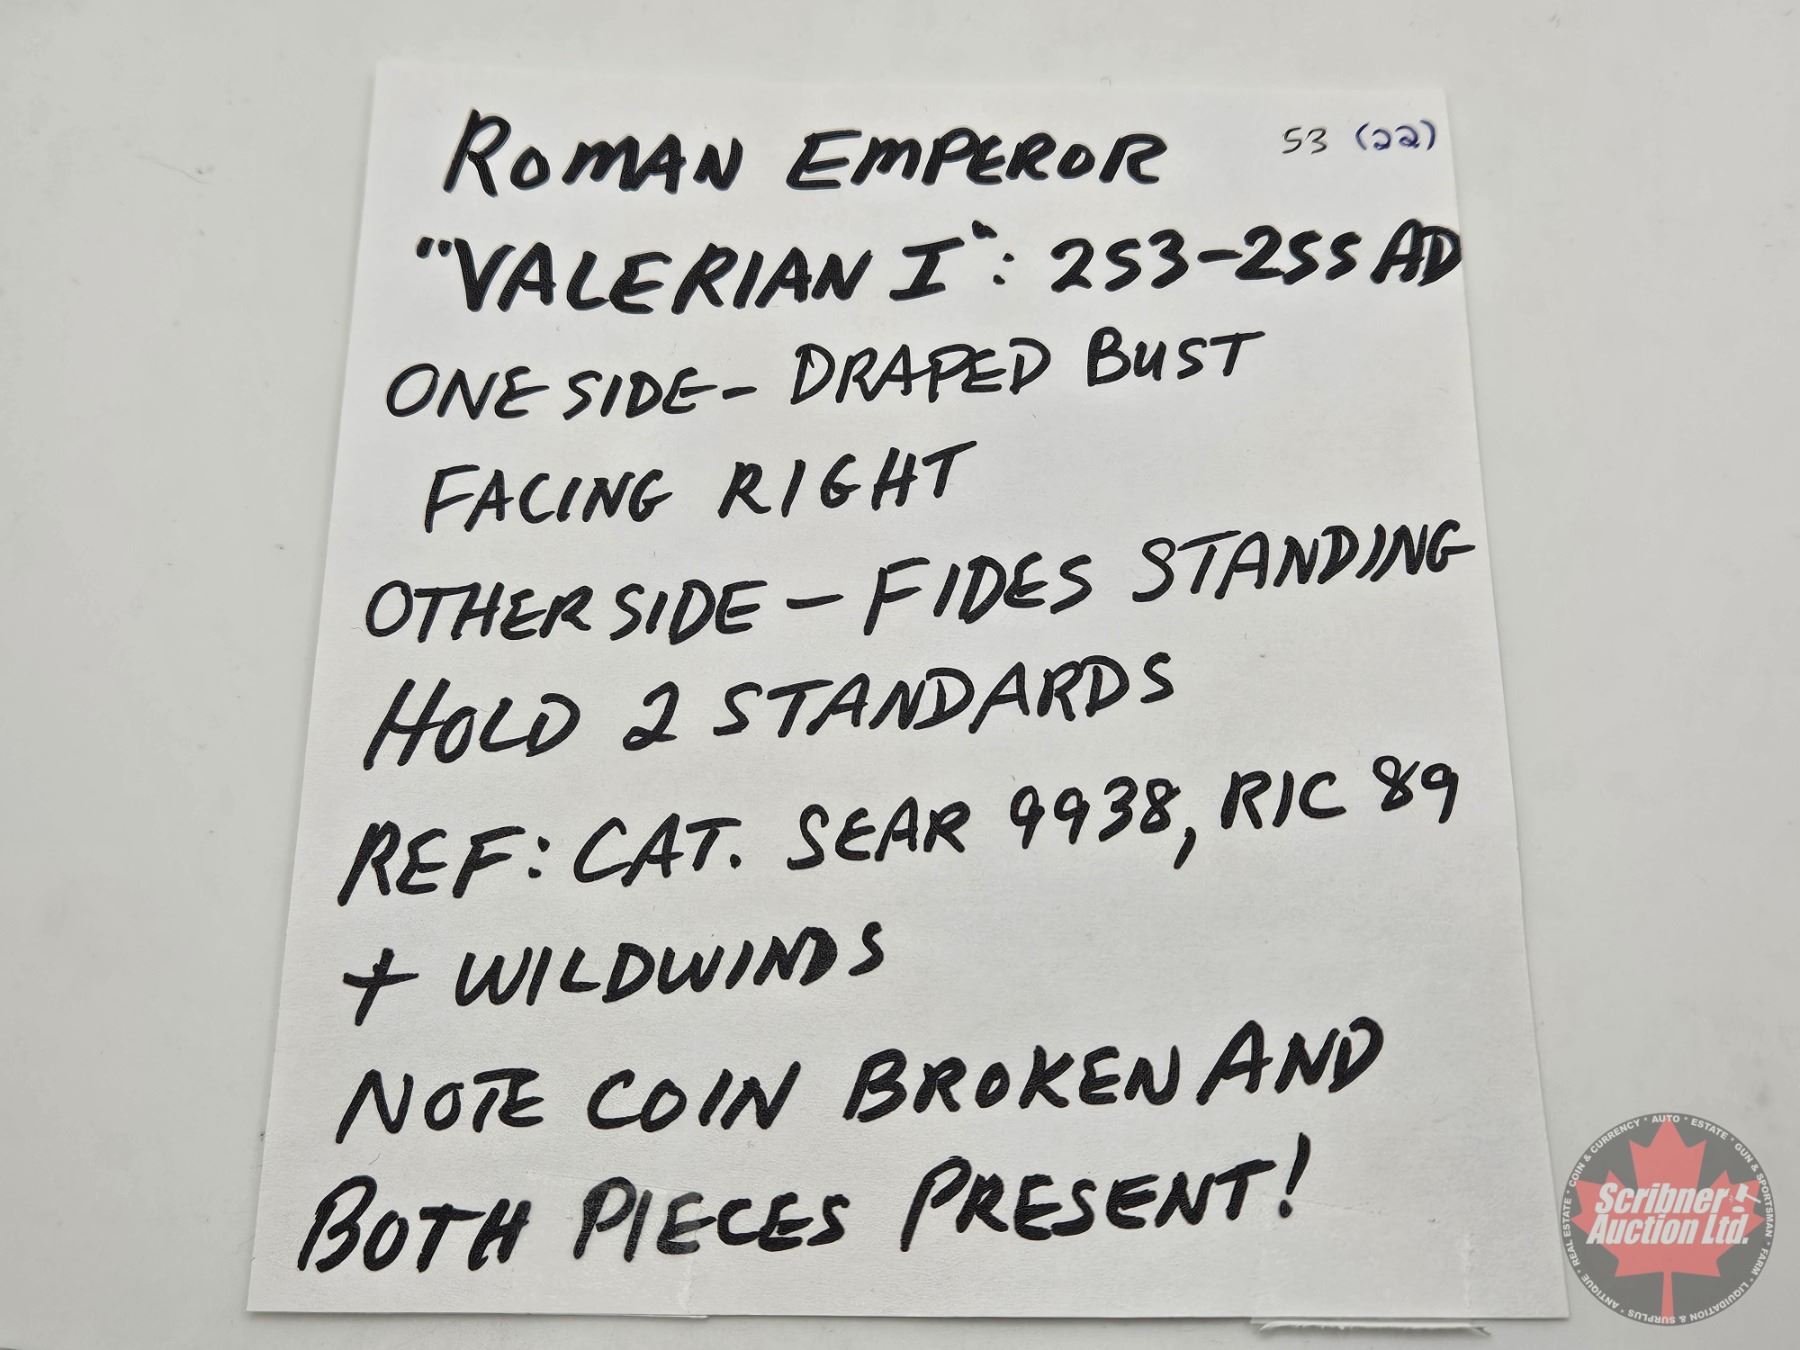 ROMAN EMPEROR 53 (22)
"VALERIAN I": 253-255 AD
ONE SIDE - DRAPED BUST
FACING RIGHT
OTHER SIDE - FIDES STANDING
HOLD 2 STANDARDS
REF: CAT. SEAR 9938, RIC 89
+ WILDWINDS
NOTE COIN BROKEN AND
BOTH PIECES PRESENT!
COIN & CURRENCY • AUTO • ESTATE • GUN & SPORTSMAN • FARM • LIQUIDATION & SURPLUS • ANTIQUE • REAL ESTATE •
Scribner
Auction Ltd.